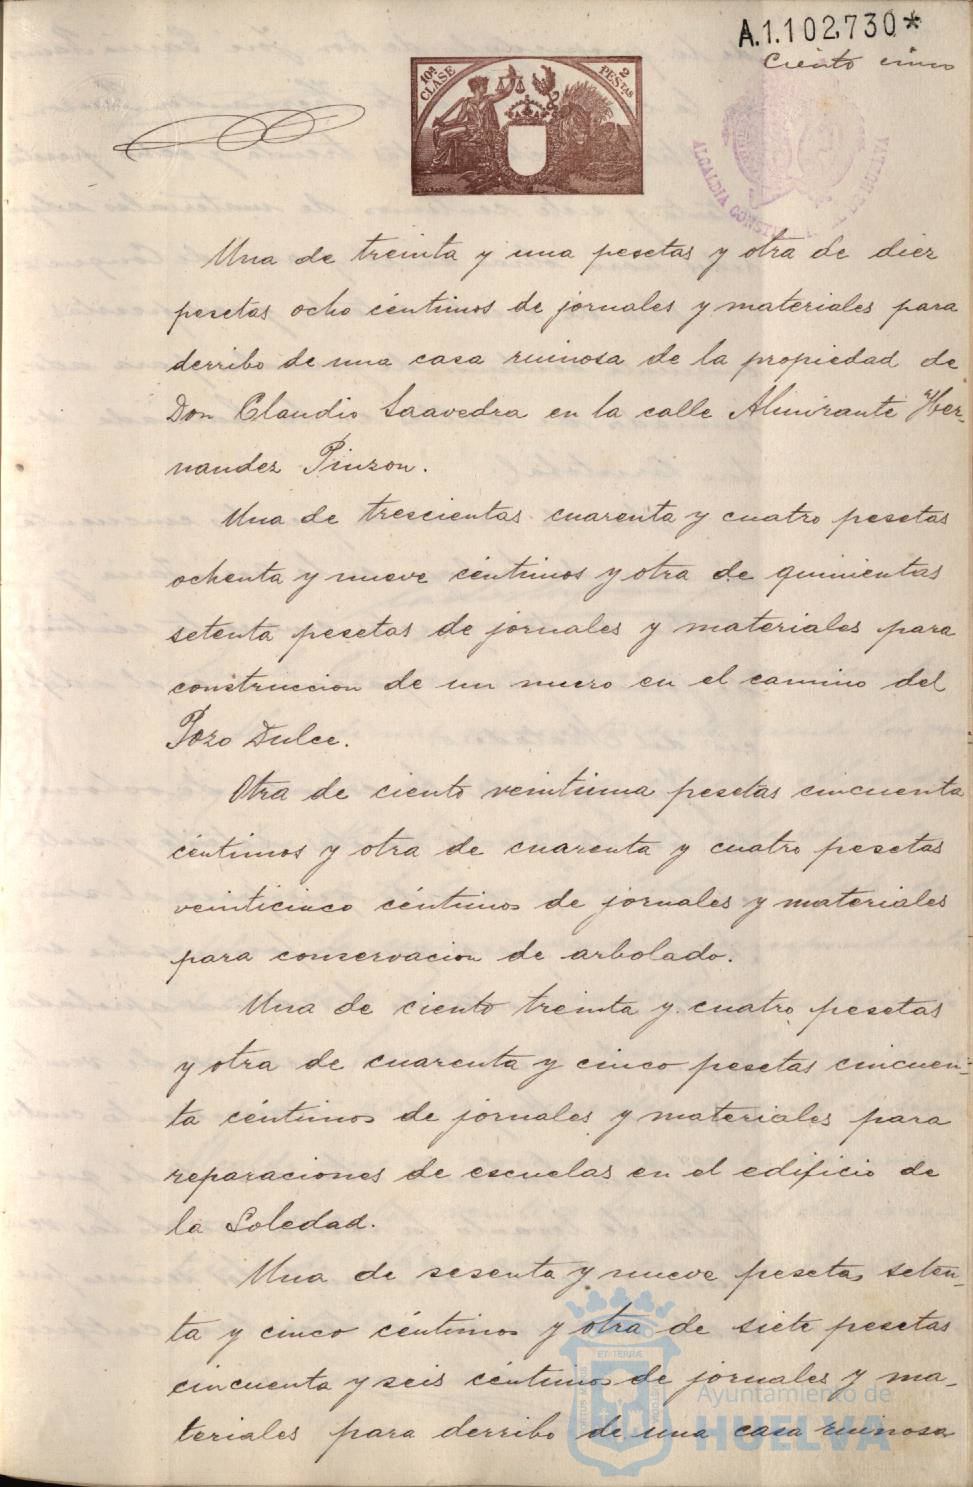 A.1.102.730*
Ciento cinco
10ª CLASE
2 PESTAS
ALCALDIA CONST DE HUELVA
Una de treinta y una pesetas y otra de diez
pesetas ocho céntimos de jornales y materiales para
derribo de una casa ruinosa de la propiedad de
Don Claudio Saavedra en la calle Almirante Her-
nandez Pinzon.
Una de trescientas cuarenta y cuatro pesetas
ochenta y nueve céntimos y otra de quinientas
setenta pesetas de jornales y materiales para
construccion de un muro en el camino del
Pozo Dulce.
Otra de ciento veintiuna pesetas cincuenta
céntimos y otra de cuarenta y cuatro pesetas
veinticinco céntimos de jornales y materiales
para conservacion de arbolado.
Una de ciento treinta y cuatro pesetas
y otra de cuarenta y cinco pesetas cincuen-
ta céntimos de jornales y materiales para
reparaciones de escuelas en el edificio de
la Soledad.
Una de sesenta y nueve pesetas seten-
ta y cinco céntimos y otra de siete pesetas
cincuenta y seis céntimos de jornales y ma-
teriales para derribo de una casa ruinosa
Ayuntamiento de
HUELVA